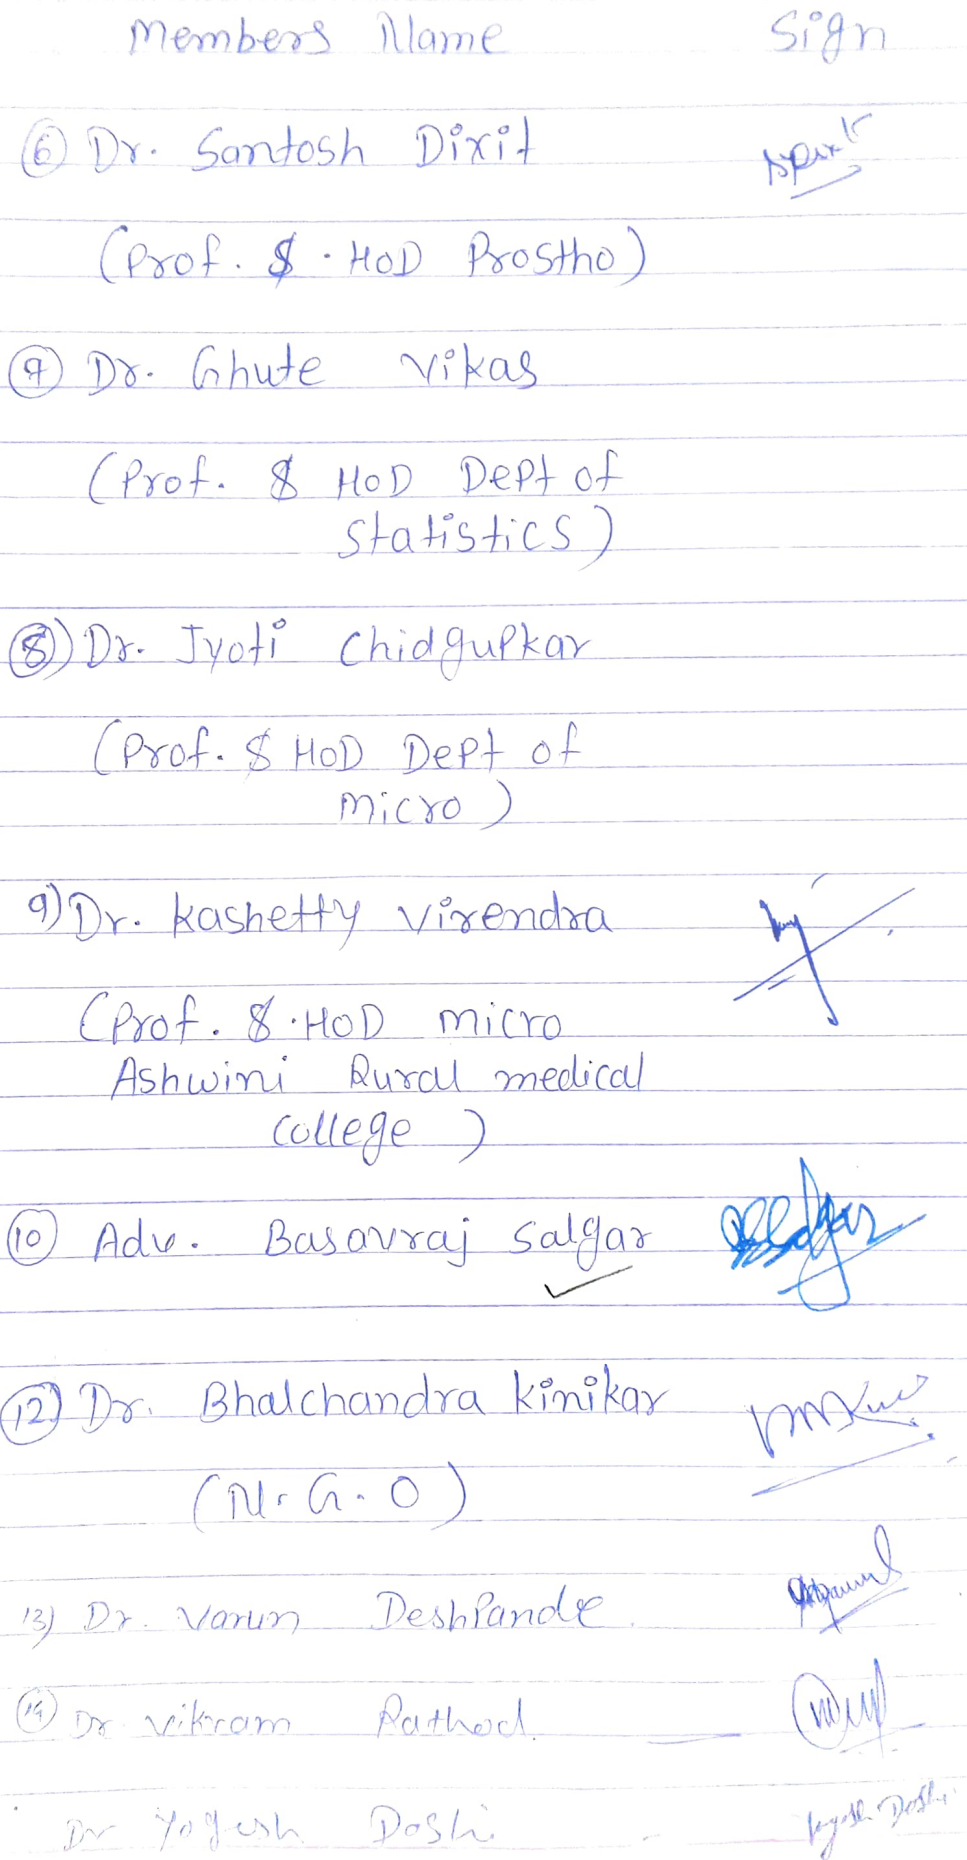 Members Name Sign
6 Dr. Santosh Dixit
(Prof. & HOD Prostho)
7 Dr. Ghute Vikas
(Prof. & HOD Dept of
Statistics)
8) Dr. Jyoti Chidgupkar
(Prof. & HOD Dept of
micro)
9) Dr. Kashetty Virendra
(Prof. & HOD micro
Ashwini Rural medical
College)
10 Adv. Basavraj Salgar
12) Dr. Bhalchandra Kinikar
(N.G.O)
13) Dr. Varun Deshpande
14 Dr Vikram Rathod.
Dr Yogesh Doshi Yogesh Doshi